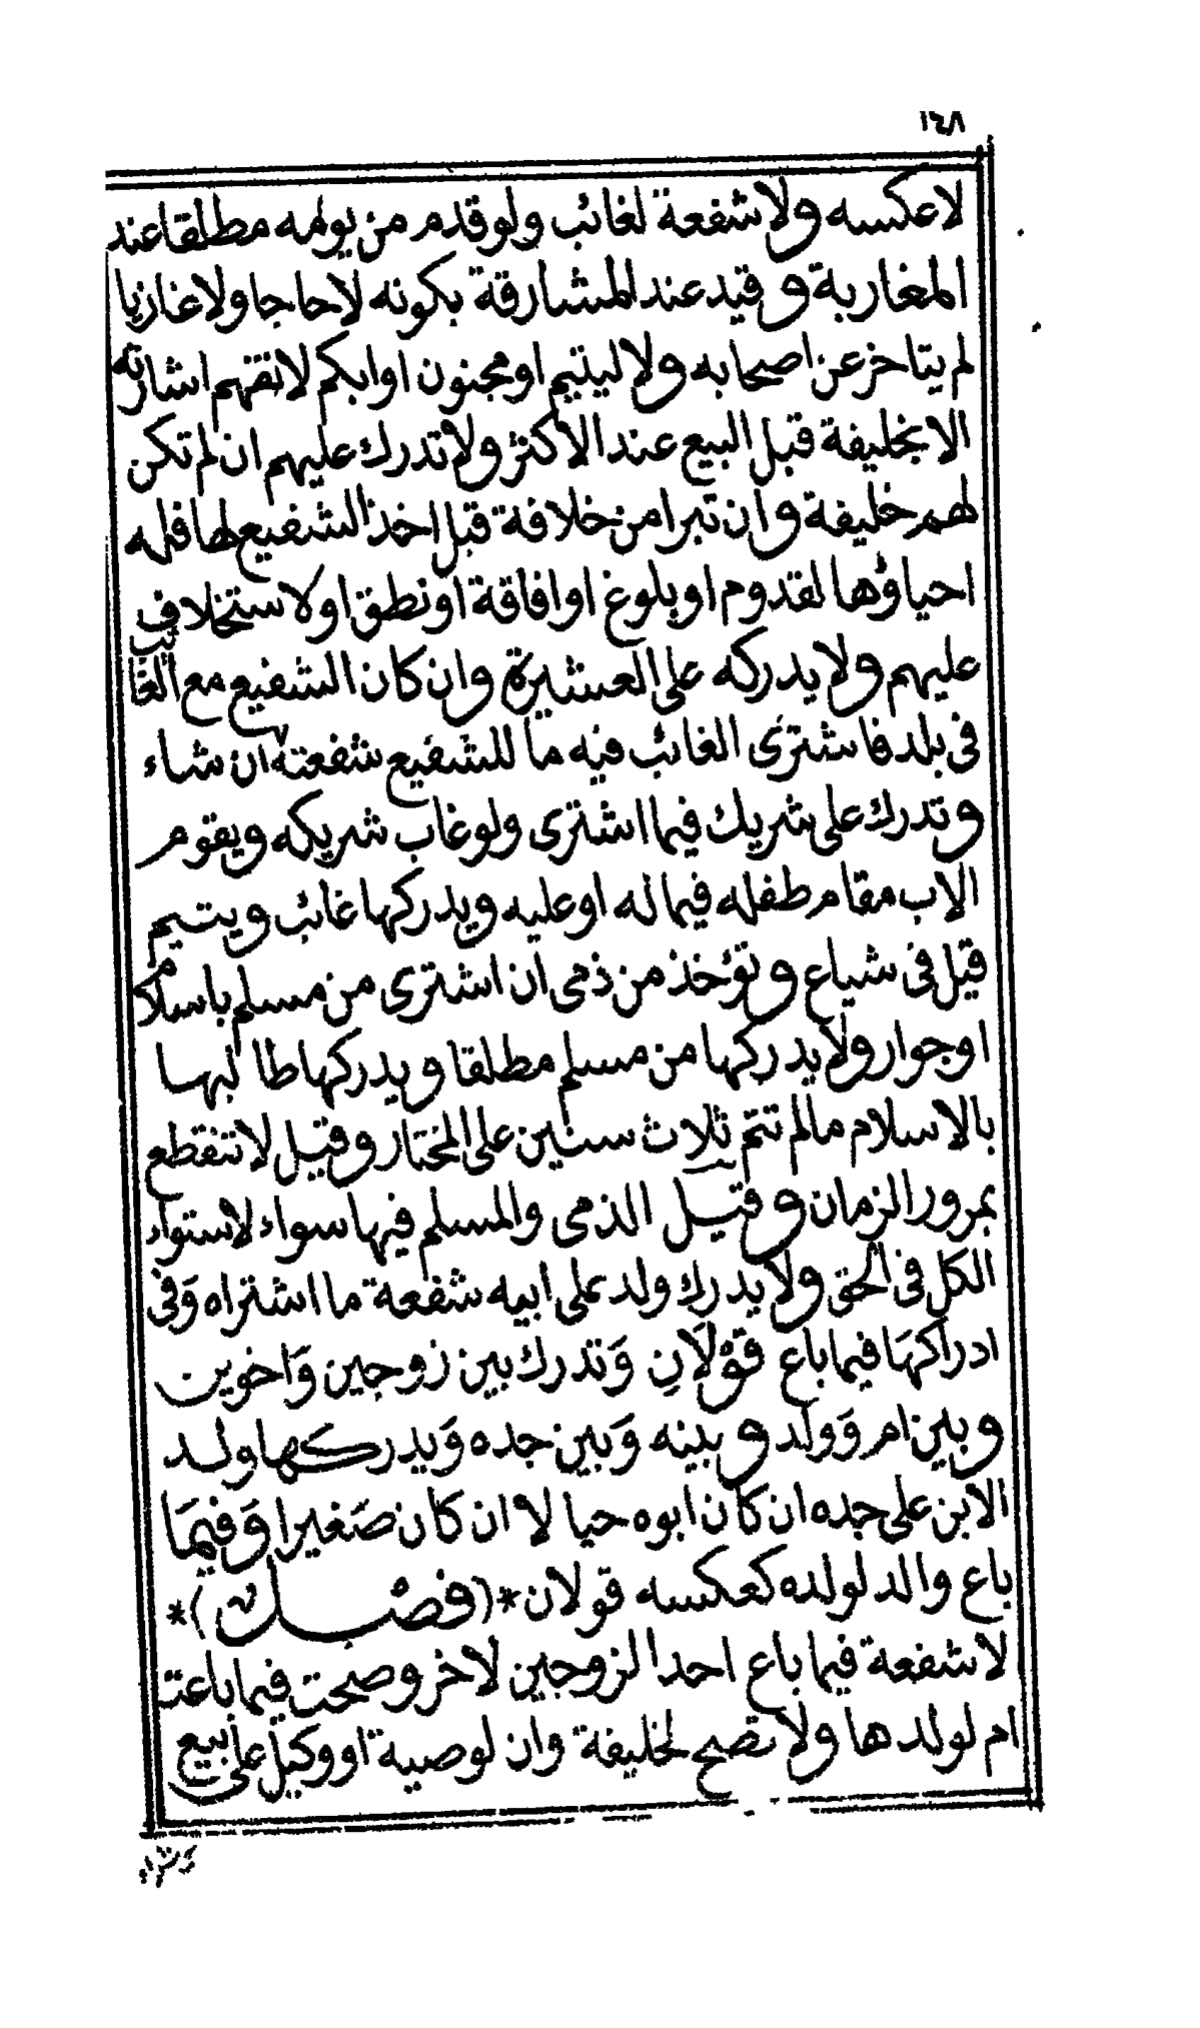 ١٤٨
لا عكسه ولا شفعة لغائب ولو قدم من يومه مطلقا عند
المغاربة وقيد عند المشارقة بكونه لا حاجا ولا غازيا
لم يتاخر عن اصحابه ولا ليتيم او مجنون او ابكم لا تفهم اشارته
الا بخليفة قبل البيع عند الاكثر ولا تدرك عليهم ان لم تكن
لهم خليفة وان تبرا من خلافة قبل اخذ الشفيع لها فله
احياؤها لقدوم او بلوغ او افاقة او نطق او لاستخلاف
عليهم ولا يدركه على العشيرة وان كان الشفيع مع الغائب
فى بلد فاشترى الغائب فيه ما للشفيع شفعته ان شاء
وتدرك على شريك فيما اشترى ولو غاب شريكه ويقوم
الاب مقام طفله فيما له او عليه ويدركها غائب ويتيم
قيل فى شياع وتؤخذ من ذمى ان اشترى من مسلم باسلام
او جوار ولا يدركها من مسلم مطلقا ويدركها طالبها
بالاسلام مالم تتم ثلاث سنين على المختار وقيل لا تنقطع
بمرور الزمان وقيل الذمى والمسلم فيها سواء لاستواء
الكل فى الحق ولا يدرك ولد على ابيه شفعة ما اشتراه وَفى
ادراكهَا فيما باع قوْلَانِ وَتدرك بين زوجين وَاخوين
وبين ام وَولد وبينه وَبين جده وَيدركها ولد
الابن على جده ان كان ابوه حيا لا ان كان صَغيرا وَفيمَا
باع والد لولده كعكسه قولان *(فصْل)*
لا شفعة فيما باع احد الزوجين لآخر وصحت فيما باعت
ام لولدها ولا تصح لخليفة وان لوصية او وكيل على بيع